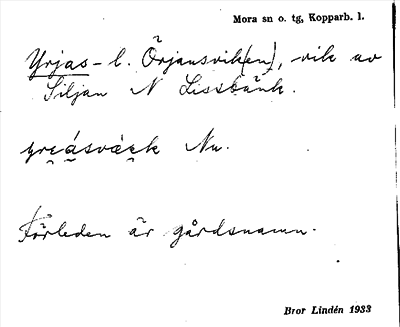 Mora sn o. tg, Kopparb. l.
Yrjas- l. Örjansvik(en), vik av
Siljan N Lissbänk.
Nu.
Förleden är gårdsnamn.
Bror Lindén 1933